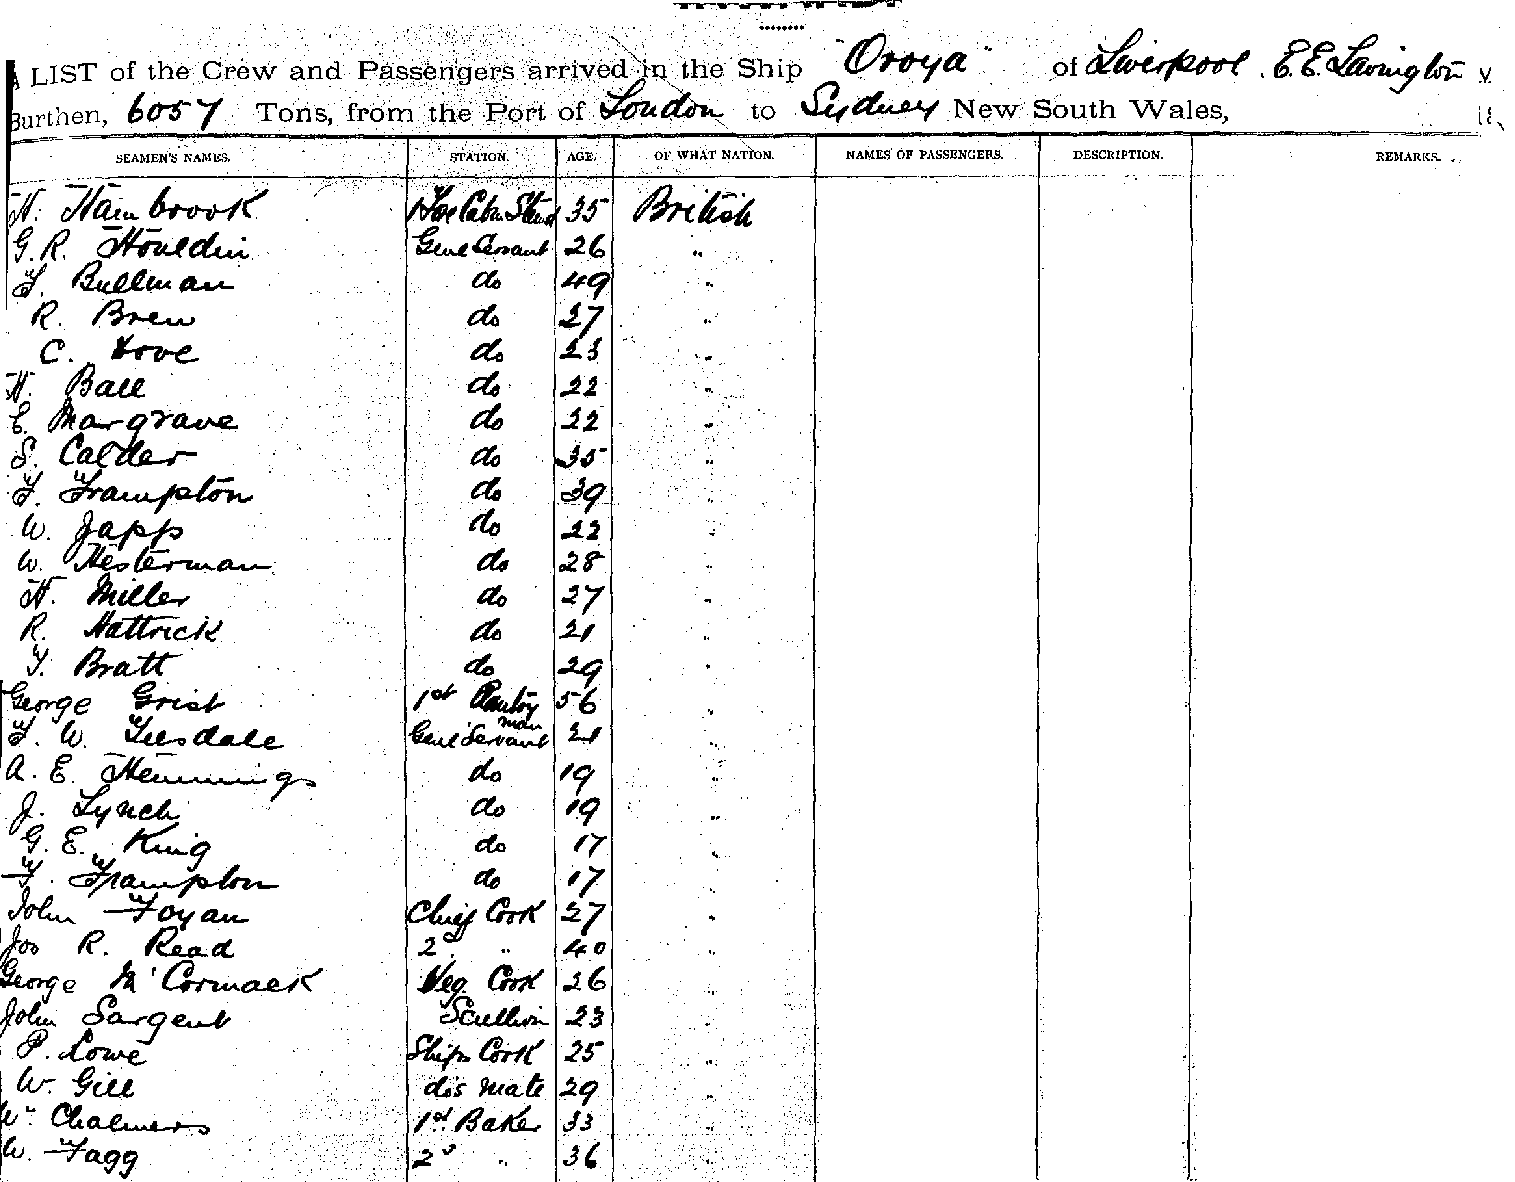 A LIST of the Crew and Passengers arrived in the Ship "Oroya" of Liverpool. E.E. Lavington
Burthen, 6057 Tons, from the Port of London to Sydney New South Wales, 18
SEAMEN'S NAMES. STATION. AGE. OF WHAT NATION. NAMES OF PASSENGERS. DESCRIPTION. REMARKS.
H. Hambrook Stewd 35 British
G. R. Houldin Genl Servant 26 "
F. Bullman do 49 "
R. Brew do 27 "
C. Love do 23 "
H. Ball do 22 "
E. Margrave do 22 "
S. Calder do 35 "
F. Frampton do 39 "
W. Japp do 22 "
W. Hesterman do 28 "
H. Miller do 27 "
R. Hattrick do 21 "
F. Bratt do 29 "
George Grist 1st Pantry man 56 "
F. W. Teesdale Genl Servant 21 "
A. E. Hemmings do 19 "
J. Lynch do 19 "
G. E. King do 17 "
F. Frampton do 17 "
John Foyan Chief Cook 27 "
Jos R. Read 2 " 40 "
George M'Cormack Veg Cook 26 "
John Sargent Scullion 23 "
P. Lowe Ships Cook 25 "
W. Gill do's mate 29 "
Wm Chalmers 1st Baker 33 "
W. Fagg 2d " 36 "